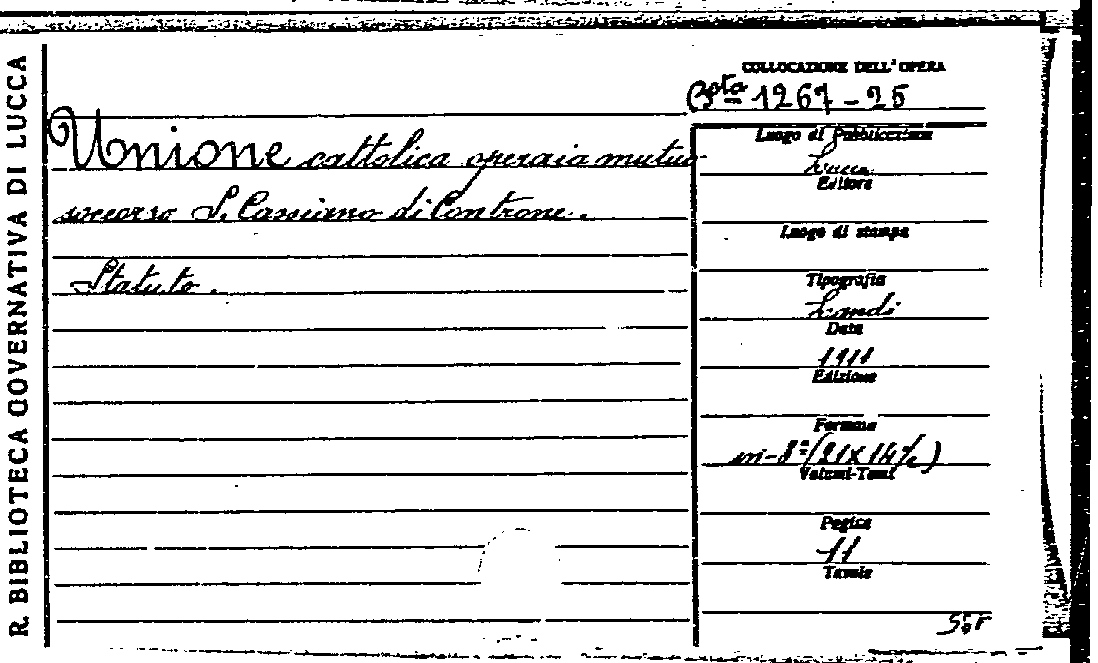 R. BIBLIOTECA GOVERNATIVA DI LUCCA
COLLOCAZIONE DELL'OPERA
Bᵗᵃ 1267-25
Unione cattolica operaia mutuo
soccorso S. Cassiano di Controne.
Statuto.
Luogo di Pubblicazione
Lucca
Editore
Luogo di stampa
Tipografia
Landi
Data
1911
Edizione
Formato
in-8º (21X14½)
Volumi-Tomi
Pagine
11
Tavole